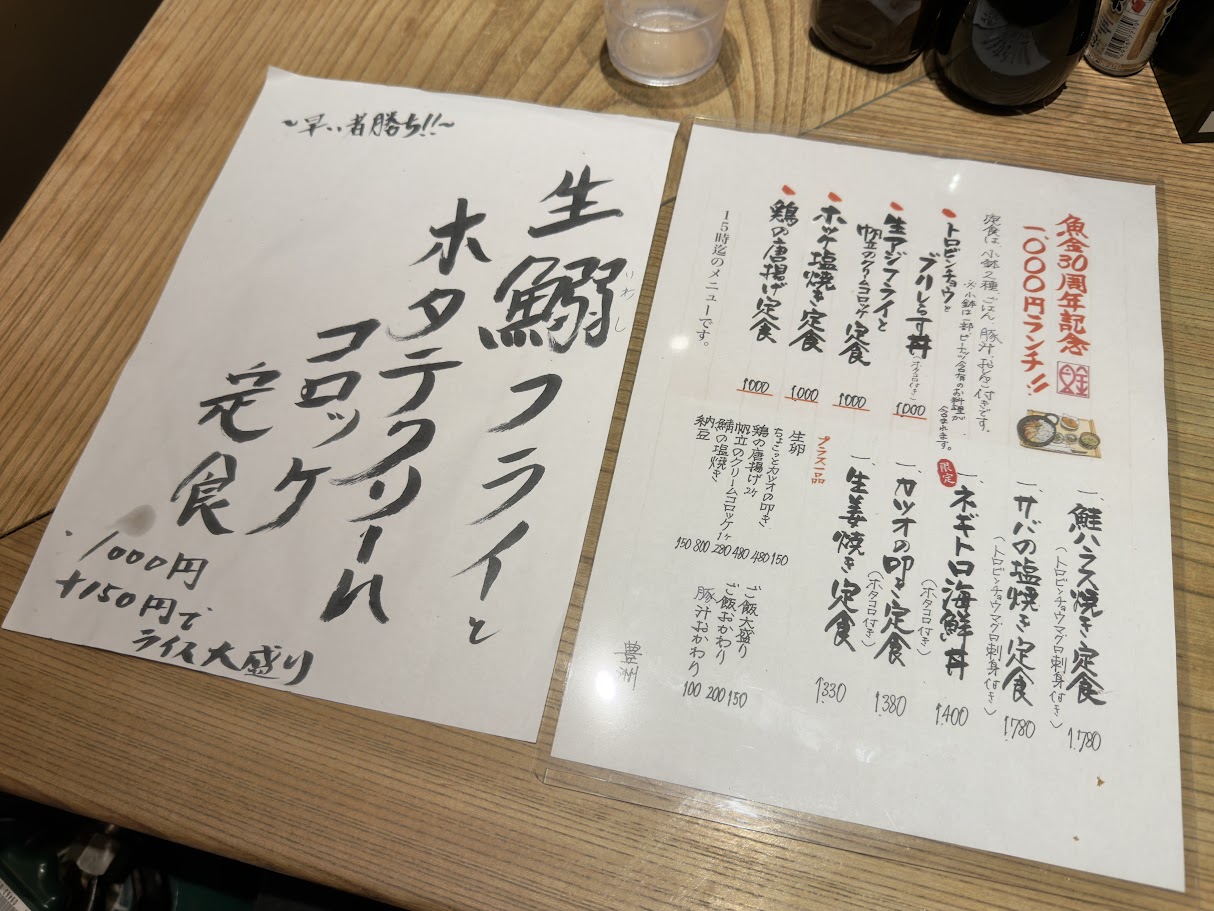 ~早い者勝ち!!~
生鰯フライと
いわし
ホタテクリーム
コロッケ
定食
1000円
+150円で
ライス大盛り
魚金30周年記念
1,000円ランチ!!
定食は、小鉢2種、ごはん、豚汁、おしんこ付きです。
※小鉢は一部ピーナッツ含有のお料理が含まれます。
トロビンチョウと
ブリしらす丼
(ホタコロ付き)
1000
生アジフライと
帆立のクリームコロッケ定食
1000
ホッケ塩焼き定食
1000
鶏の唐揚げ定食
1000
15時迄のメニューです。
一、鮭ハラス焼き定食
(トロビンチョウマグロ刺身付き)
1,780
一、サバの塩焼き定食
(トロビンチョウマグロ刺身付き)
1,780
限定
一、ネギトロ海鮮丼
(ホタコロ付き)
1,400
一、カツオの叩き定食
(ホタコロ付き)
1,380
一、生姜焼き定食
1,330
プラス一品
生卵 150
ちょこっとカツオの叩き 480
鶏の唐揚げ2ケ 480
帆立のクリームコロッケ1ケ 280
鯖の塩焼き 800
納豆 150
ご飯大盛り 150
ご飯おかわり 200
豚汁おかわり 100
豊洲